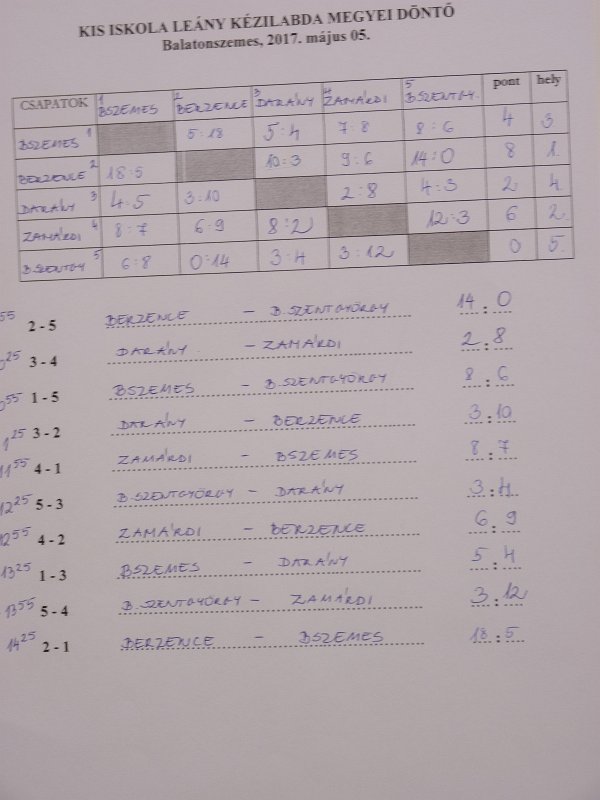 KIS ISKOLA LEÁNY KÉZILABDA MEGYEI DÖNTŐ
Balatonszemes, 2017. május 05.
CSAPATOK 1 BSZEMES 2 BERZENCE 3 DARÁNY 4 ZAMÁRDI 5 B.SZENTGY. pont hely
BSZEMES 1 5:18 5:4 7:8 8:6 4 3.
BERZENCE 2 18:5 10:3 9:6 14:0 8 1.
DARÁNY 3 4:5 3:10 2:8 4:3 2 4.
ZAMÁRDI 4 8:7 6:9 8:2 12:3 6 2.
B.SZENTGY 5 6:8 0:14 3:4 3:12 0 5.
55 2 - 5 BERZENCE - B.SZENTGYÖRGY 14 : 0
25 3 - 4 DARÁNY - ZAMÁRDI 2 : 8
55 1 - 5 BSZEMES - B.SZENTGYÖRGY 8 : 6
25 3 - 2 DARÁNY - BERZENCE 3 : 10
11 55 4 - 1 ZAMÁRDI - BSZEMES 8 : 7
12 25 5 - 3 B.SZENTGYÖRGY - DARÁNY 3 : 4
12 55 4 - 2 ZAMÁRDI - BERZENCE 6 : 9
13 25 1 - 3 BSZEMES - DARÁNY 5 : 4
13 55 5 - 4 B.SZENTGYÖRGY - ZAMÁRDI 3 : 12
14 25 2 - 1 BERZENCE - BSZEMES 18 : 5